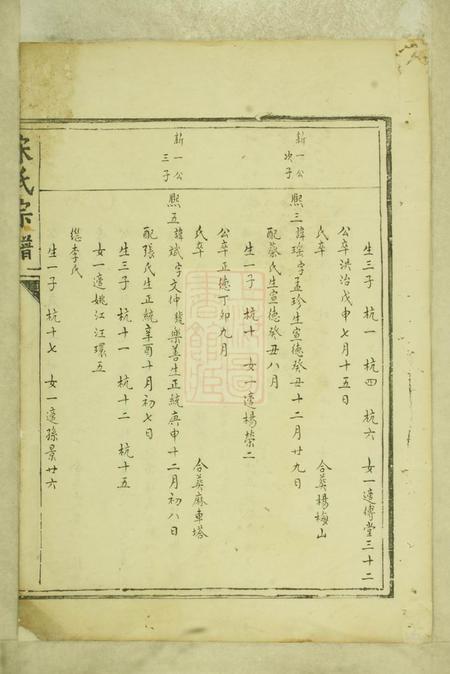 生三子 杭一 杭四 杭六 女一適傅堂三十二
公卒洪治戊申七月十五日
氏卒 合葬楊梅山
新一公
次子
熙三諱瑤字孟珍生宣德癸丑十二月廿九日
配蔡氏生宣德癸丑八月
生一子 杭十 女一適楊榮二
公卒正德丁卯九月
氏卒 合葬麻車塔
新一公
三子
熙五諱斌字文仲號樂善生正統庚申十二月初八日
配張氏生正統辛酉十月初七日
生三子 杭十一 杭十二 杭十五
女一適姚江汪環五
繼李氏
生一子 杭十七 女一適孫景廿六
宋氏宗譜